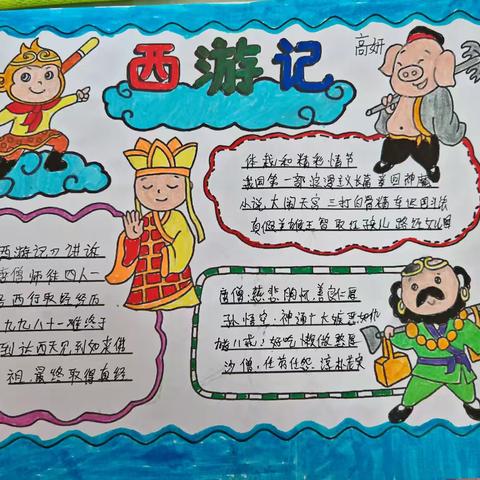 西游记
高妍
体裁和精彩情节
我国第一部浪漫主义长篇章回神魔
小说.大闹天宫 三打白骨精 车迟国斗法
真假美猴王 智取红孩儿 路阻女儿国
西游记》讲诉
唐僧师徒四人一
西行取经经历
九九八十一难终于
到达西天见到如来佛
祖.最终取得真经
唐僧.慈悲 胸怀善良仁厚
孙悟空.神通广大嫉恶如仇
猪八戒:好吃懒做憨厚
沙僧.任劳任怨.淳朴老实